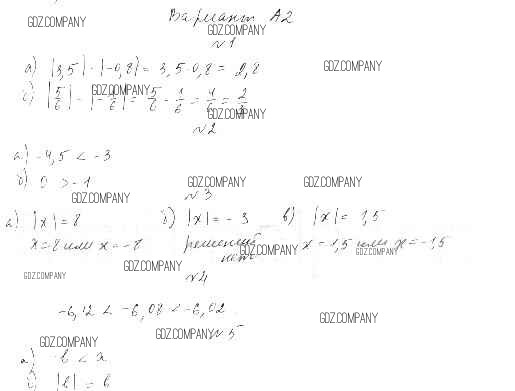 Вариант А2
GDZ.COMPANY
GDZ.COMPANY
№1
а) |3,5| · |-0,8| = 3,5·0,8 = 2,8
GDZ.COMPANY
GDZ.COMPANY
б) |5/6| - |-1/6| = 5/6 - 1/6 = 4/6 = 2/3
GDZ.COMPANY
№2
а) -4,5 < -3
б) 0 > -1
GDZ.COMPANY
GDZ.COMPANY
GDZ.COMPANY
№3
а) |x| = 8 б) |x| = -3 в) |x| = 1,5
x=8 или x=-8 решений нет x=1,5 или x=-1,5
GDZ.COMPANY
GDZ.COMPANY
GDZ.COMPANY
GDZ.COMPANY
№4
-6,12 < -6,08 < -6,02
GDZ.COMPANY
GDZ.COMPANY
№5
GDZ.COMPANY
а) b < a
б) |b| = b